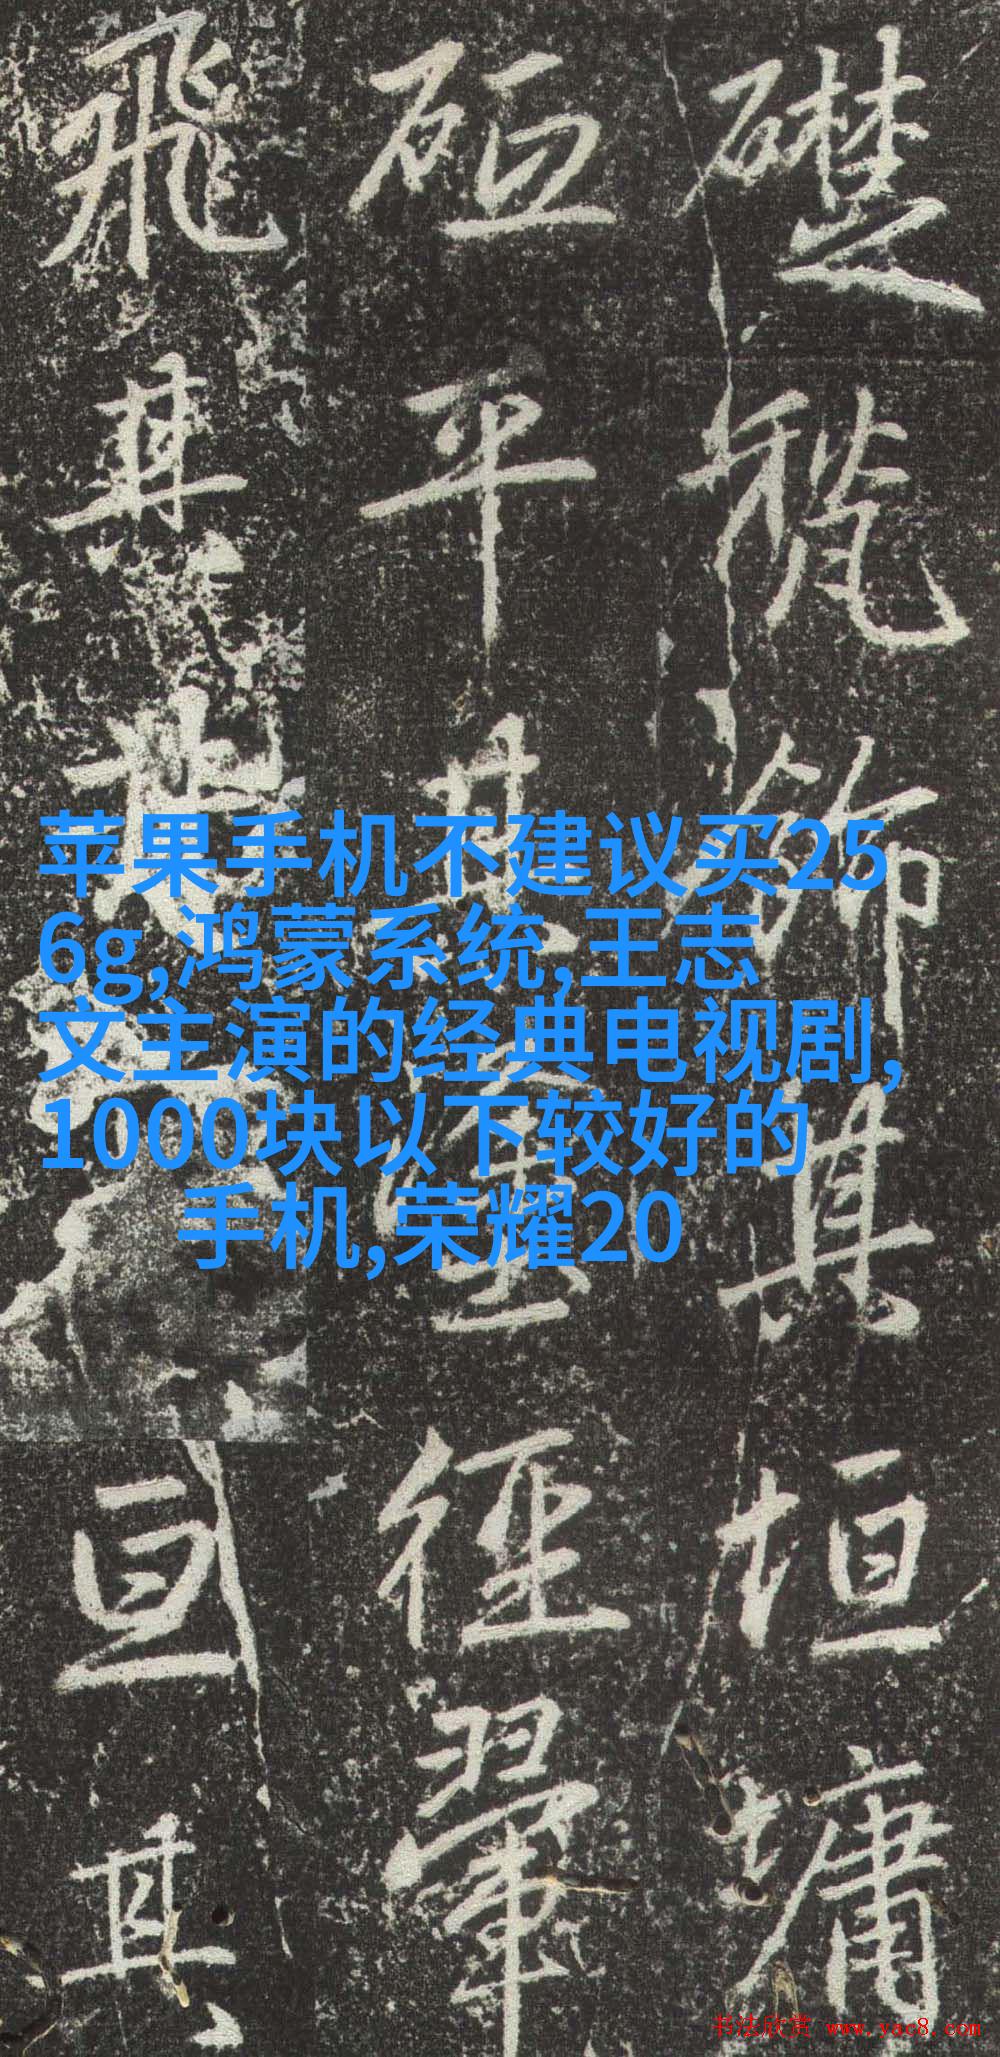 礎飾其垣墉
平其徑翬
飛其亘其
苹果手机不建议买25
6g,鸿蒙系统,王志
文主演的经典电视剧,
1000块以下较好的
手机,荣耀20
书法欣赏 www.yac8.com